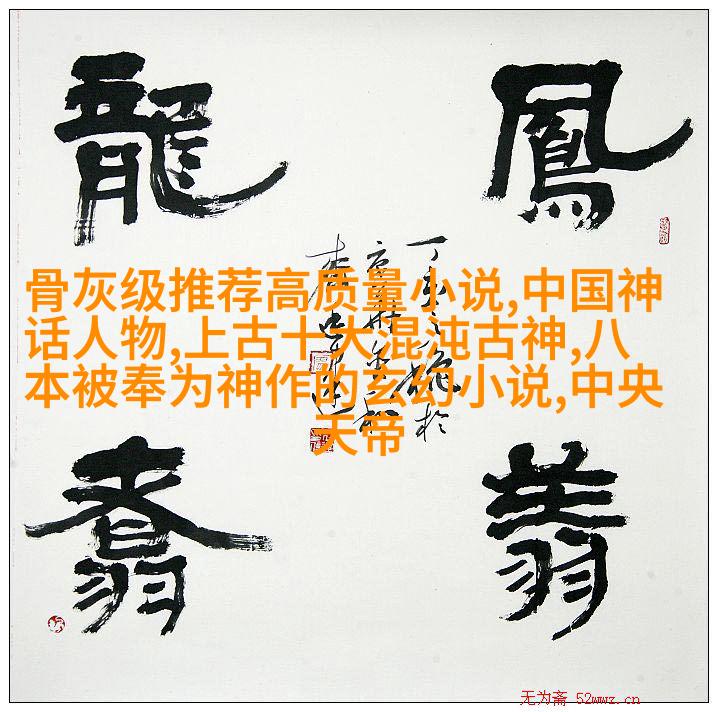 鳳翔
龍翥
骨灰级推荐高质量小说,中国神
话人物,上古十大混沌古神,八
本被奉为神作的玄幻小说,中央
天帝
无为斋 52wwz.cn